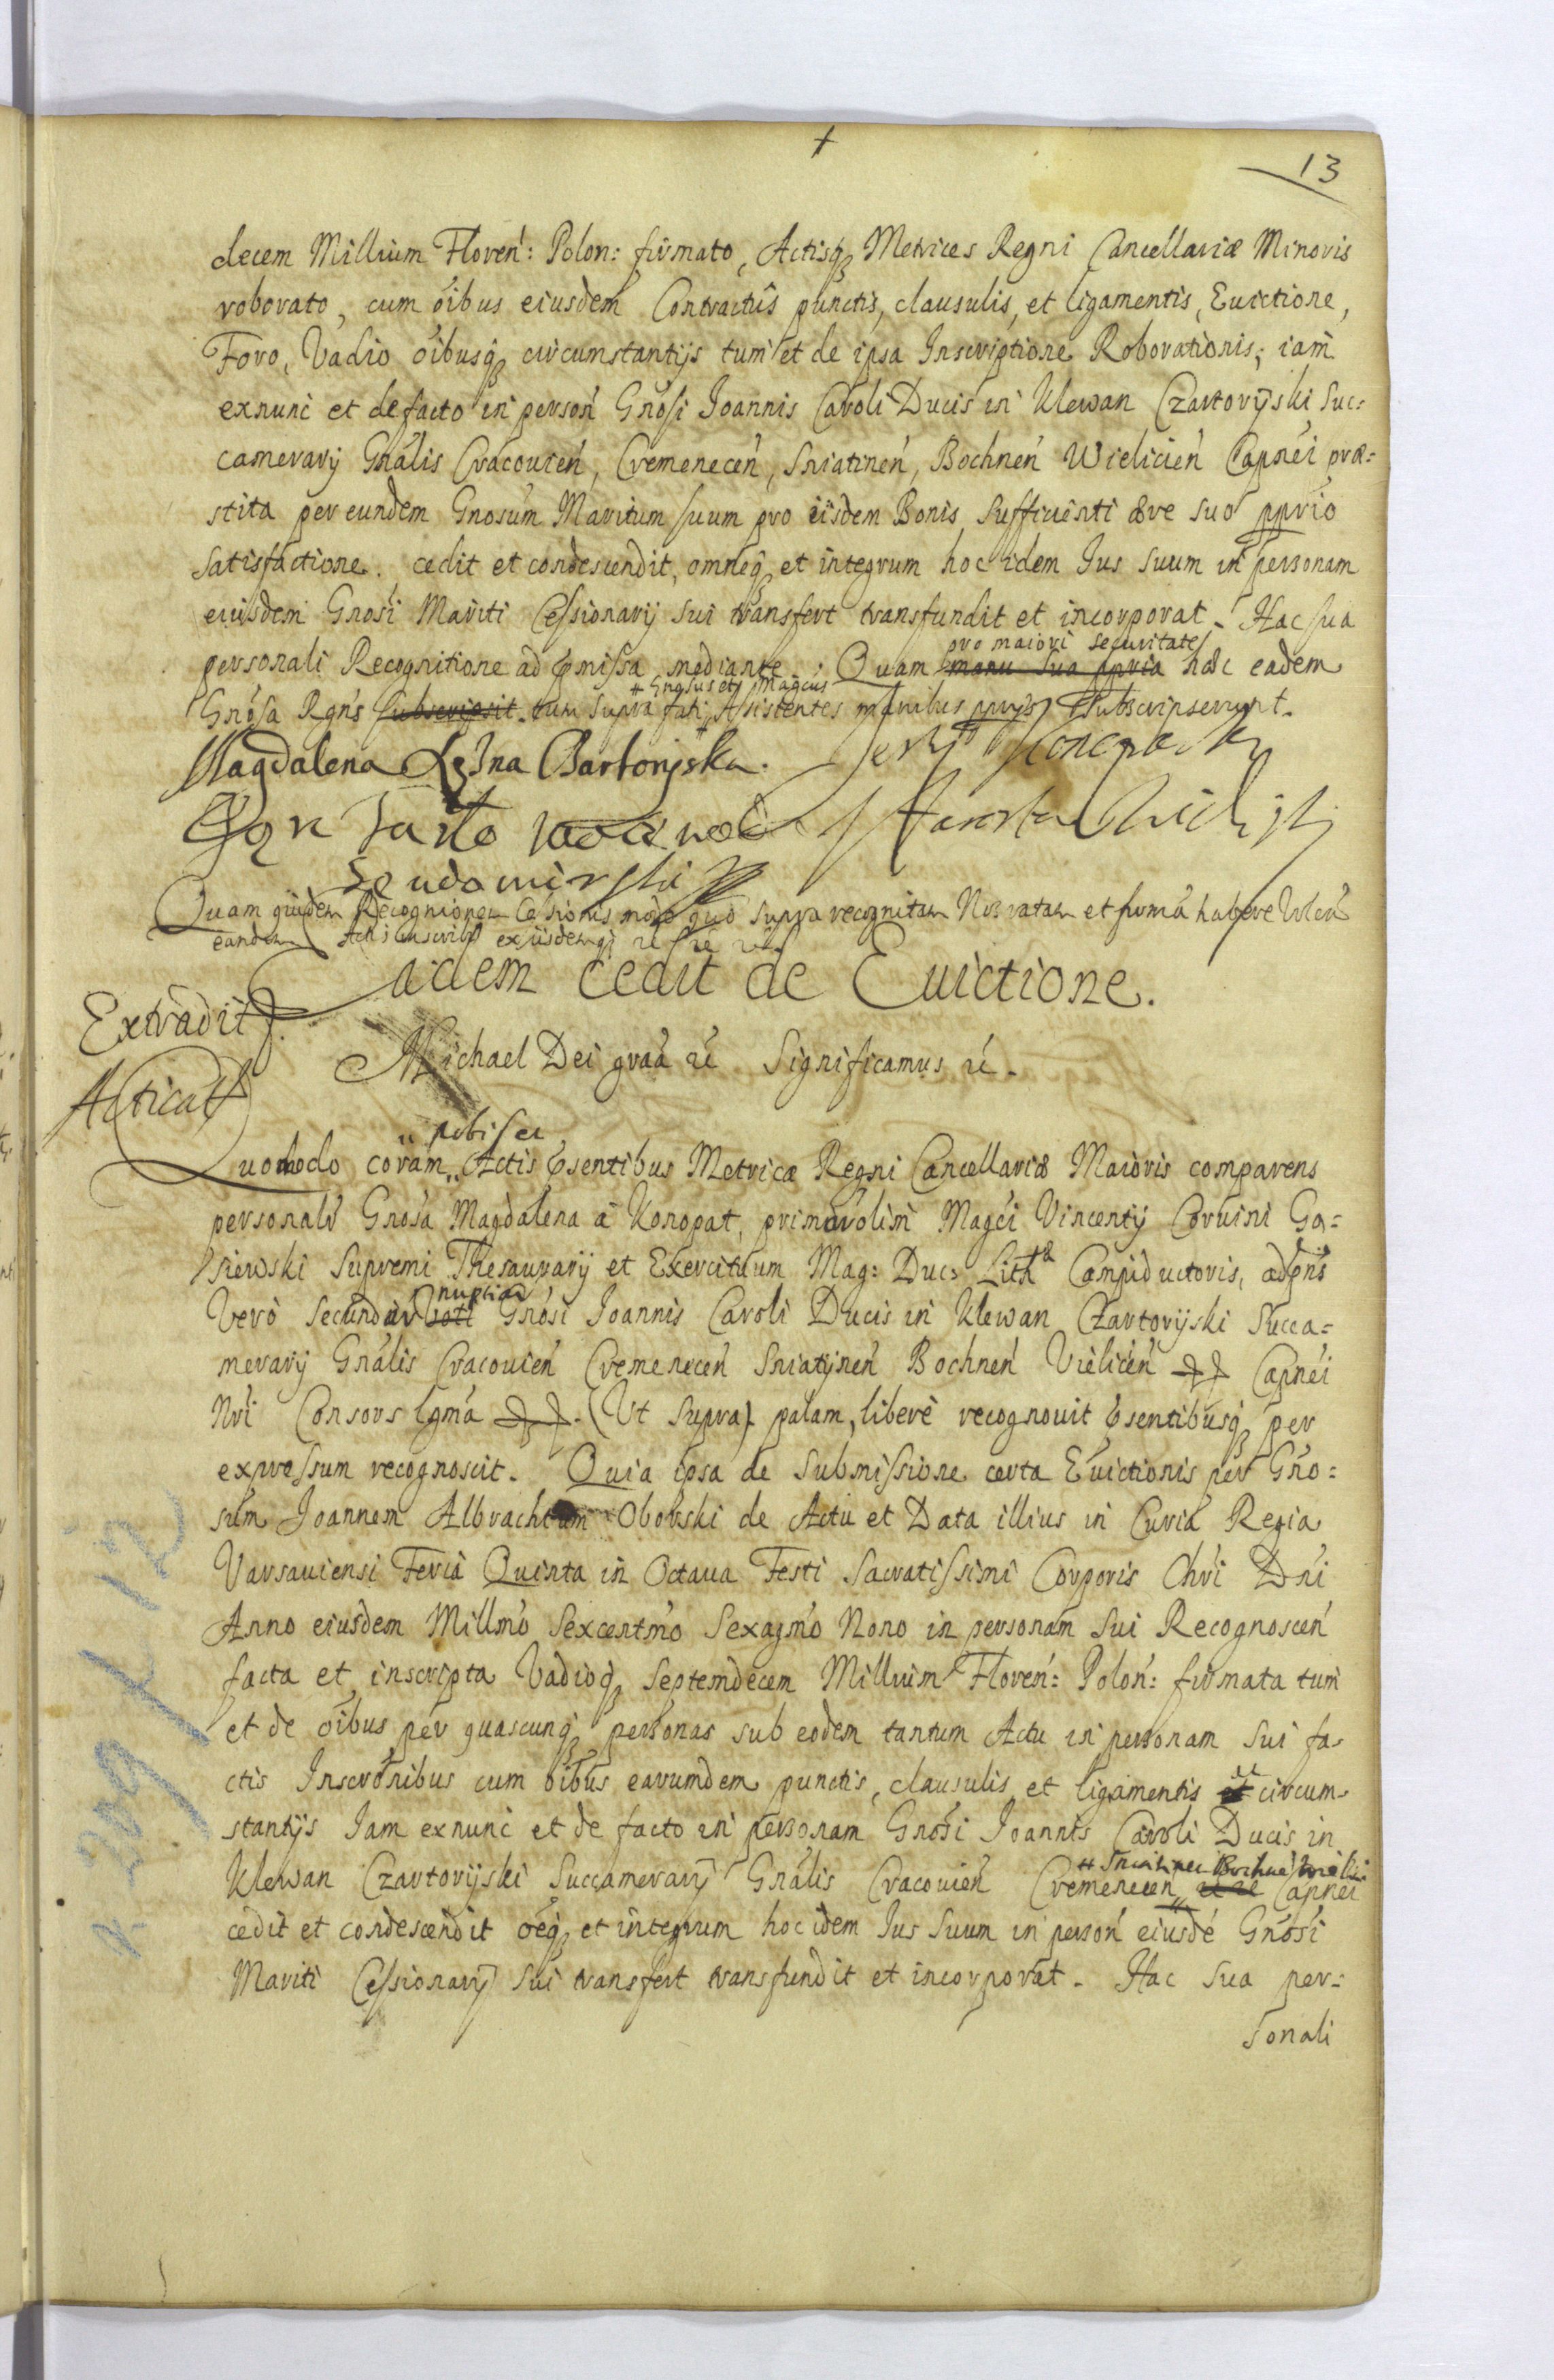 +
13
decem Millium Floren: Polon: firmato, Actisq Metrices Regni Cancellariæ Minoris
roborato, cum oibus eiusdem Contractûs punctis, clausulis, et ligamentis, Euictione,
Foro, Vadio oibusq circumstantijs tum et de ipsa Inscriptione Roborationis; iam
exnunc et defacto in person Gnosi Joannis Caroli Ducis in Klewan Czartoryski Suc=
camerarij Gnalis Cracouien, Cremenecen, Sniatinen, Bochnen Wielicien Capnei præ=
stita per eundem Gnosum Maritum suum pro iisdem Bonis Sufficienti ære suo pprio
Satisfactione. cedit et condescendit, omneq et integrum hoc idem Jus suum in personam
eiusdem Gnosi Mariti Cessionarij sui transfert transfundit et incorporat. Hac sua
pro maiori securitate
personali Recognitione ad præmissa mediante. Quam manu sua ppria hæc eadem
+ Gnosus et Magcus
Gnosa Rgns subscripsit tum supra fati Assistentes manibus pprijs subscripserunt.
Magdalena Czartoryska.
Sendomirski
Quam quidem Recognionem Cessionis modo quo supra recognitam et firma habere
eandem Actis inscribi exiisdemq
Eadem cedit de Euictione.
Extradit
Michael Dei graa rc Significamus rc.
Acticat
nobis et
Quomodo coram Actis præsentibus Metricæ Regni Cancellariæ Maioris comparens
personalr Gnosa Magdalena à Konopat, primar olim Magci Vincentij Coruini Go=
siewski Supremi Thesaurarij et Exercituum Mag: Duc: Lith Campiductoris, adpns
nuptiar
Vero Secundar voti Gnosi Joannis Caroli Ducis in Klewan Czartoryski Succa=
merarij Gnalis Cracouien Cremenecen Sniatynen Bochnen Vielicen Capnei
Nri Consors lgma (Ut supra) palam, liberè recognouit præsentibusq per
expressum recognoscit. Quia ipsa de Submissione certa Euictionis per Gno=
sum Joannem Albrachtum Oborski de Actu et Data illius in Curia Regia
Varsauiensi Feria Quinta in Octaua Festi Sacratissimi Corporis Chri Dni
Anno eiusdem Millmo Sexcentmo Sexagmo Nono in personam Sui Recognoscen
facta et inscripta Vadioq Septemdecem Millium Floren: Polon: firmata tum
et de oibus per quascunq personas sub eodem tantum Actu in personam Sui fa=
ctis Inscronibus cum oibus earumdem punctis, clausulis et ligamentis et circum=
stantijs Jam exnunc et de facto in personam Gnosi Joannis Caroli Ducis in
Sniatinen Bochnen Wielicien
Klewan Czartoryski Succamerarij Gnalis Cracouien Cremenecen Capnei
cedit et condescendit oeq et integrum hoc idem Jus Suum in person eiusde Gnosi
Mariti Cessionarij Sui transfert transfundit et incorporat. Hac Sua per=
sonali